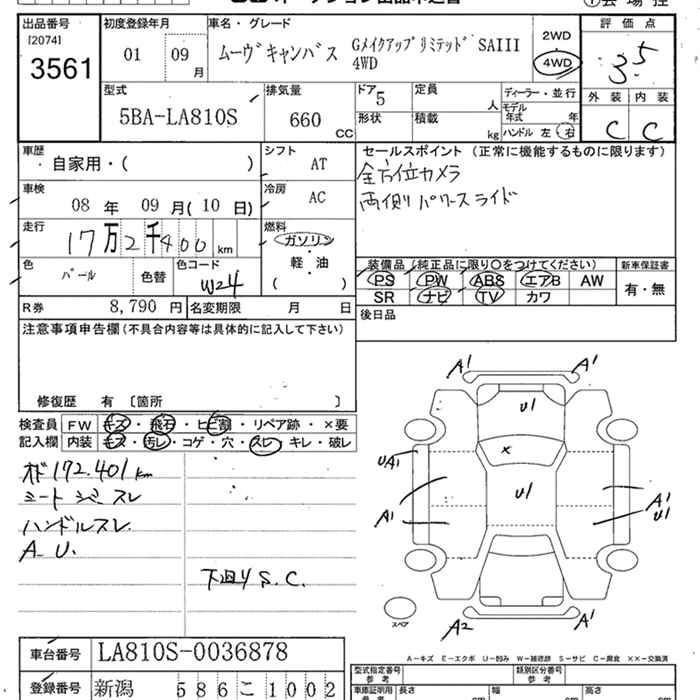 出品番号 初度登録年月 車名・グレード 評価点
[2074]
3561
01 09月 ムーヴキャンバス GメイクアップリミテッドSAIII 4WD
2WD
4WD
3.5
外装 内装
C C
型式 排気量 ドア 定員 ディーラー・並行
5BA-LA810S 660 CC 5 人
モデル年式 年
形状 積載 kg ハンドル 左 右
車歴 シフト セールスポイント (正常に機能するものに限ります)
・自家用・( ) AT
全方位カメラ
両側パワースライド
車検 冷房
08年 09月(10日) AC
走行 燃料
17万2千400km ガソリン
・
軽・油
( )
色 色コード
パール 色替 W24
装備品(純正品に限り○をつけてください) 新車保証書
PS PW ABS エアB AW 有・無
SR ナビ TV カワ
R券 8,790円 名変期限 月 日
後日品
注意事項申告欄(不具合内容等は具体的に記入して下さい)
修復歴 有 〔箇所 〕
検査員 FW キズ・飛石・ヒビ割・リペア跡・×要
記入欄 内装 キズ・汚レ・コゲ・穴・スレ・キレ・破レ
オド172,401km
シートシミスレ
ハンドルスレ
A.U.
下廻りS.C.
A1 A1
U1
×
UA1
U1
A1
A1
U1
A2 A1
スペア
A-キズ E-エクボ U-凹み W-補修跡 S-サビ C-腐食 ××-交換済
車台番号 LA810S-0036878
登録番号 新潟 586こ1002
型式指定番号 参考 類別区分番号 参考
車庫証明用 参考 長さ cm 幅 cm 高さ cm